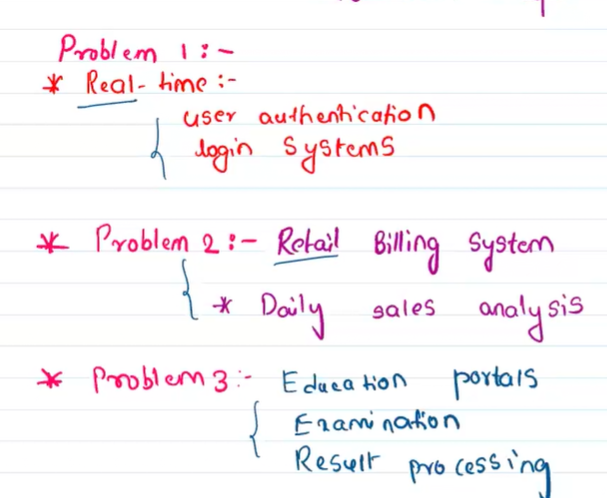 Problem 1:-
* Real-time:-
user authentication
login systems
* Problem 2:- Retail Billing System
* Daily sales analysis
* Problem 3:- Education portals
Examination
Result processing